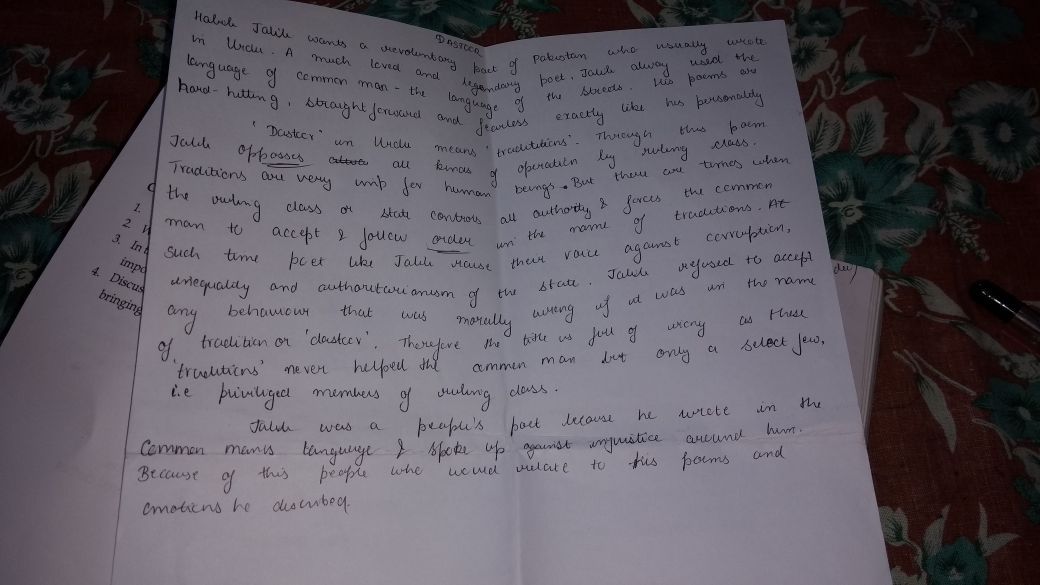 DASTOOR
Habib Jalib wants a revolutionary poet of Pakistan who usually wrote
in Urdu. A much loved and legendary poet, Jalib alway used the
language of common man - the language of the streets. His poems are
hard-hitting, straightforward and fearless exactly like his personality
'Dastoor' in Urdu means 'traditions'. Through this poem
Jalib opposses all kinds of by ruling class.
Traditions are very imp for human beings. But there are times when
the ruling class or state controls all authority & forces the common
man to accept & follow order in the name of traditions. At
such time poet like Jalib raise their voice against corruption,
inequality and authoritarianism of the state. Jalib refused to accept
any behaviour that was morally wrong if it was in the name
of tradition or 'dastoor'. Therefore the title is full of as these
'traditions' never helped the common man but only a select few,
i.e priviliged members of ruling class.
Jalib was a people's poet because he wrote in the
Common man's language & spoke up against injustice around him.
Because of this people who would relate to his poems and
emotions he described.
1.
2. W
3. In t
impo
4. Discus
bringing